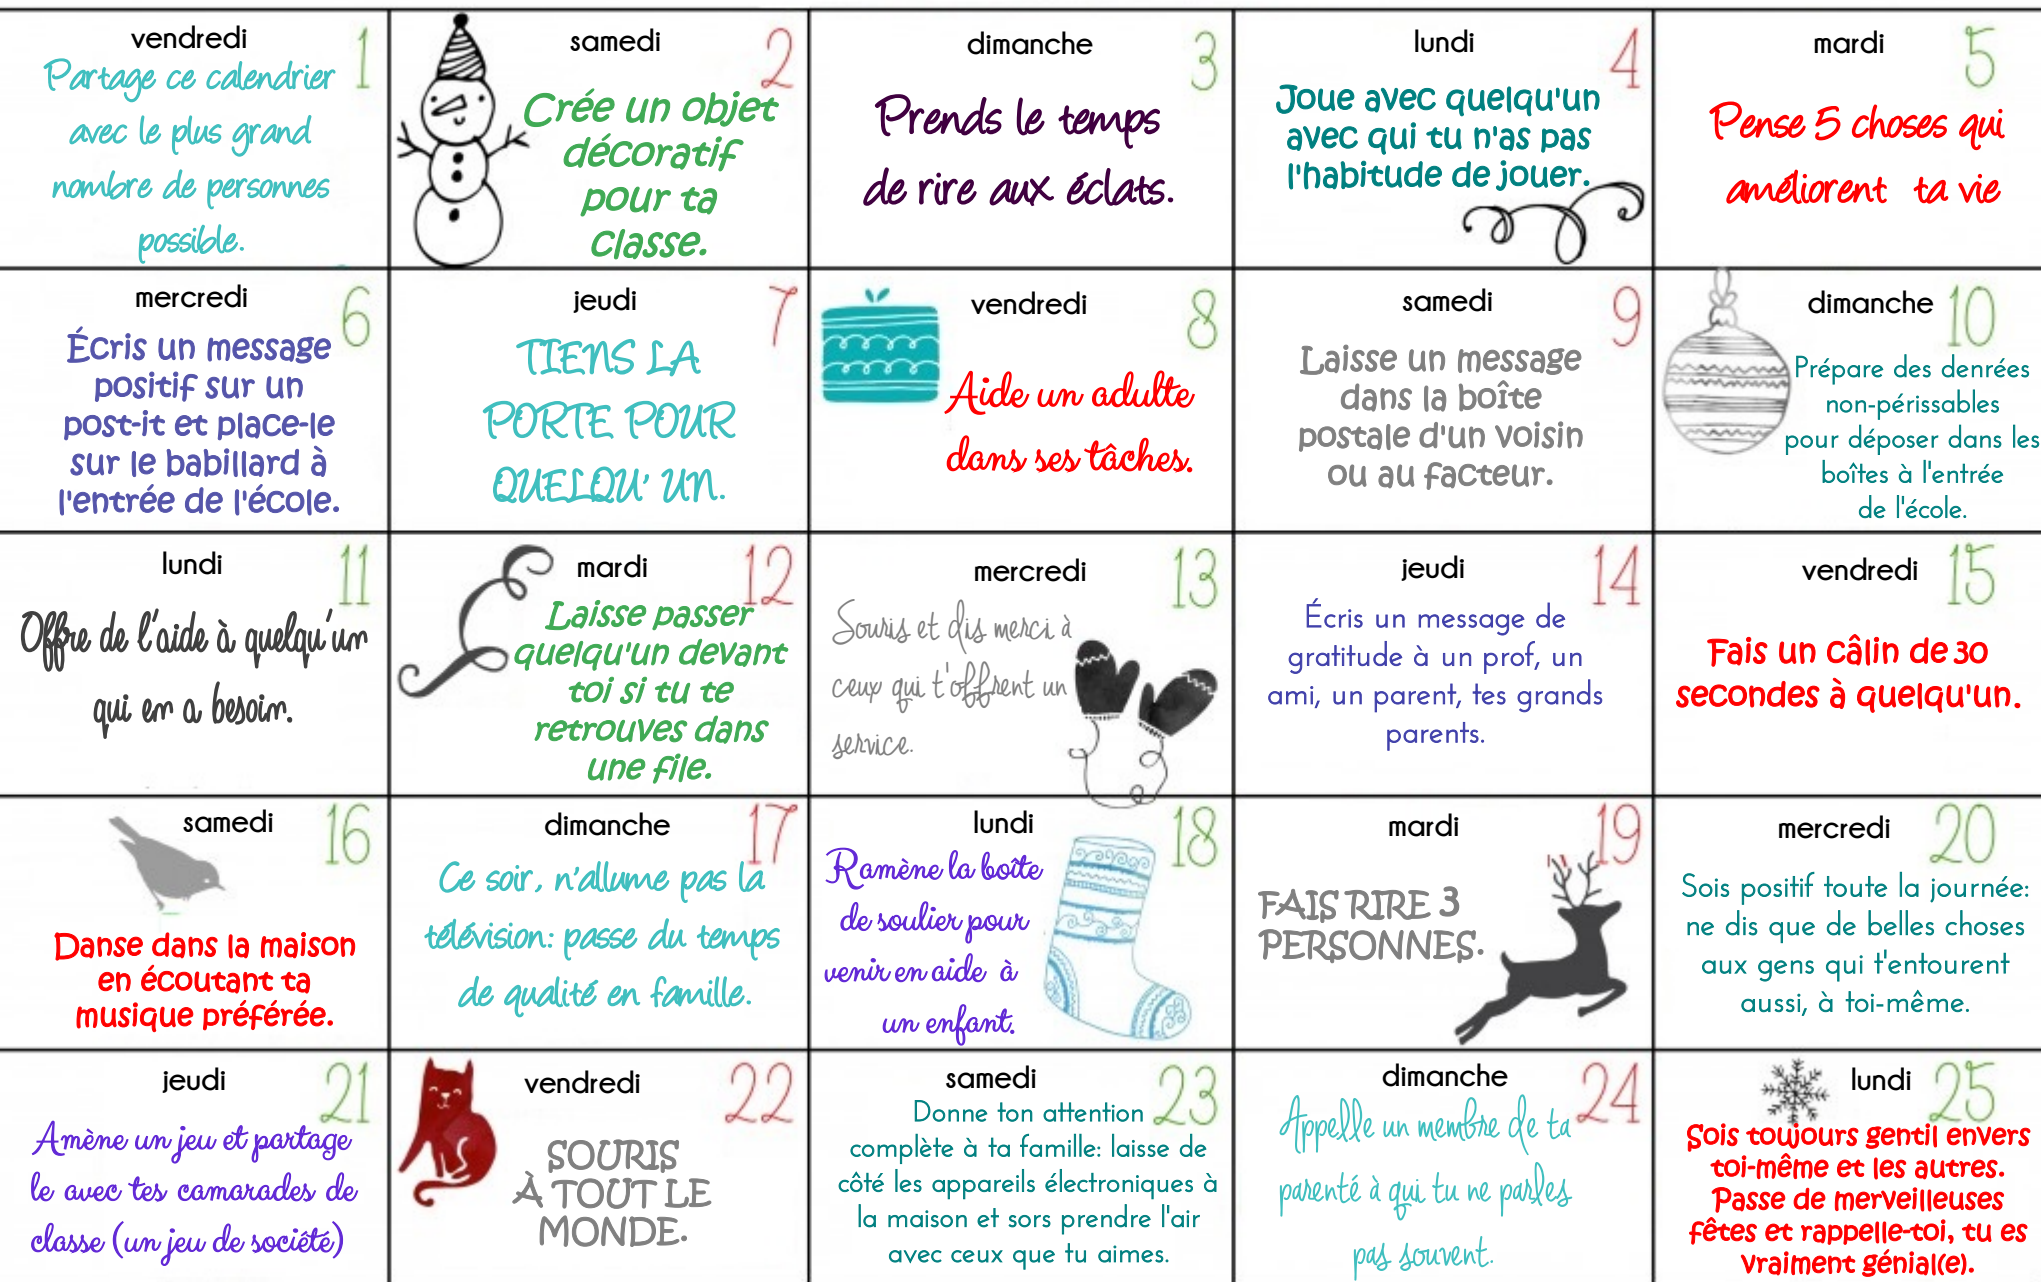 vendredi 1
Partage ce calendrier
avec le plus grand
nombre de personnes
possible.
samedi 2
Crée un objet
décoratif
pour ta
classe.
dimanche 3
Prends le temps
de rire aux éclats.
lundi 4
Joue avec quelqu'un
avec qui tu n'as pas
l'habitude de jouer.
mardi 5
Pense 5 choses qui
améliorent ta vie
mercredi 6
Écris un message
positif sur un
post-it et place-le
sur le babillard à
l'entrée de l'école.
jeudi 7
TIENS LA
PORTE POUR
QUELQU' UN.
vendredi 8
Aide un adulte
dans ses tâches.
samedi 9
Laisse un message
dans la boîte
postale d'un voisin
ou au facteur.
dimanche 10
Prépare des denrées
non-périssables
pour déposer dans les
boîtes à l'entrée
de l'école.
lundi 11
Offre de l'aide à quelqu'un
qui en a besoin.
mardi 12
Laisse passer
quelqu'un devant
toi si tu te
retrouves dans
une file.
mercredi 13
Souris et dis merci à
ceux qui t'offrent un
service.
jeudi 14
Écris un message de
gratitude à un prof, un
ami, un parent, tes grands
parents.
vendredi 15
Fais un câlin de 30
secondes à quelqu'un.
samedi 16
Danse dans la maison
en écoutant ta
musique préférée.
dimanche 17
Ce soir, n'allume pas la
télévision: passe du temps
de qualité en famille.
lundi 18
Ramène la boîte
de soulier pour
venir en aide à
un enfant.
mardi 19
FAIS RIRE 3
PERSONNES.
mercredi 20
Sois positif toute la journée:
ne dis que de belles choses
aux gens qui t'entourent
aussi, à toi-même.
jeudi 21
Amène un jeu et partage
le avec tes camarades de
classe (un jeu de société)
vendredi 22
SOURIS
À TOUT LE
MONDE.
samedi 23
Donne ton attention
complète à ta famille: laisse de
côté les appareils électroniques à
la maison et sors prendre l'air
avec ceux que tu aimes.
dimanche 24
Appelle un membre de ta
parenté à qui tu ne parles
pas souvent.
lundi 25
Sois toujours gentil envers
toi-même et les autres.
Passe de merveilleuses
fêtes et rappelle-toi, tu es
vraiment génial(e).